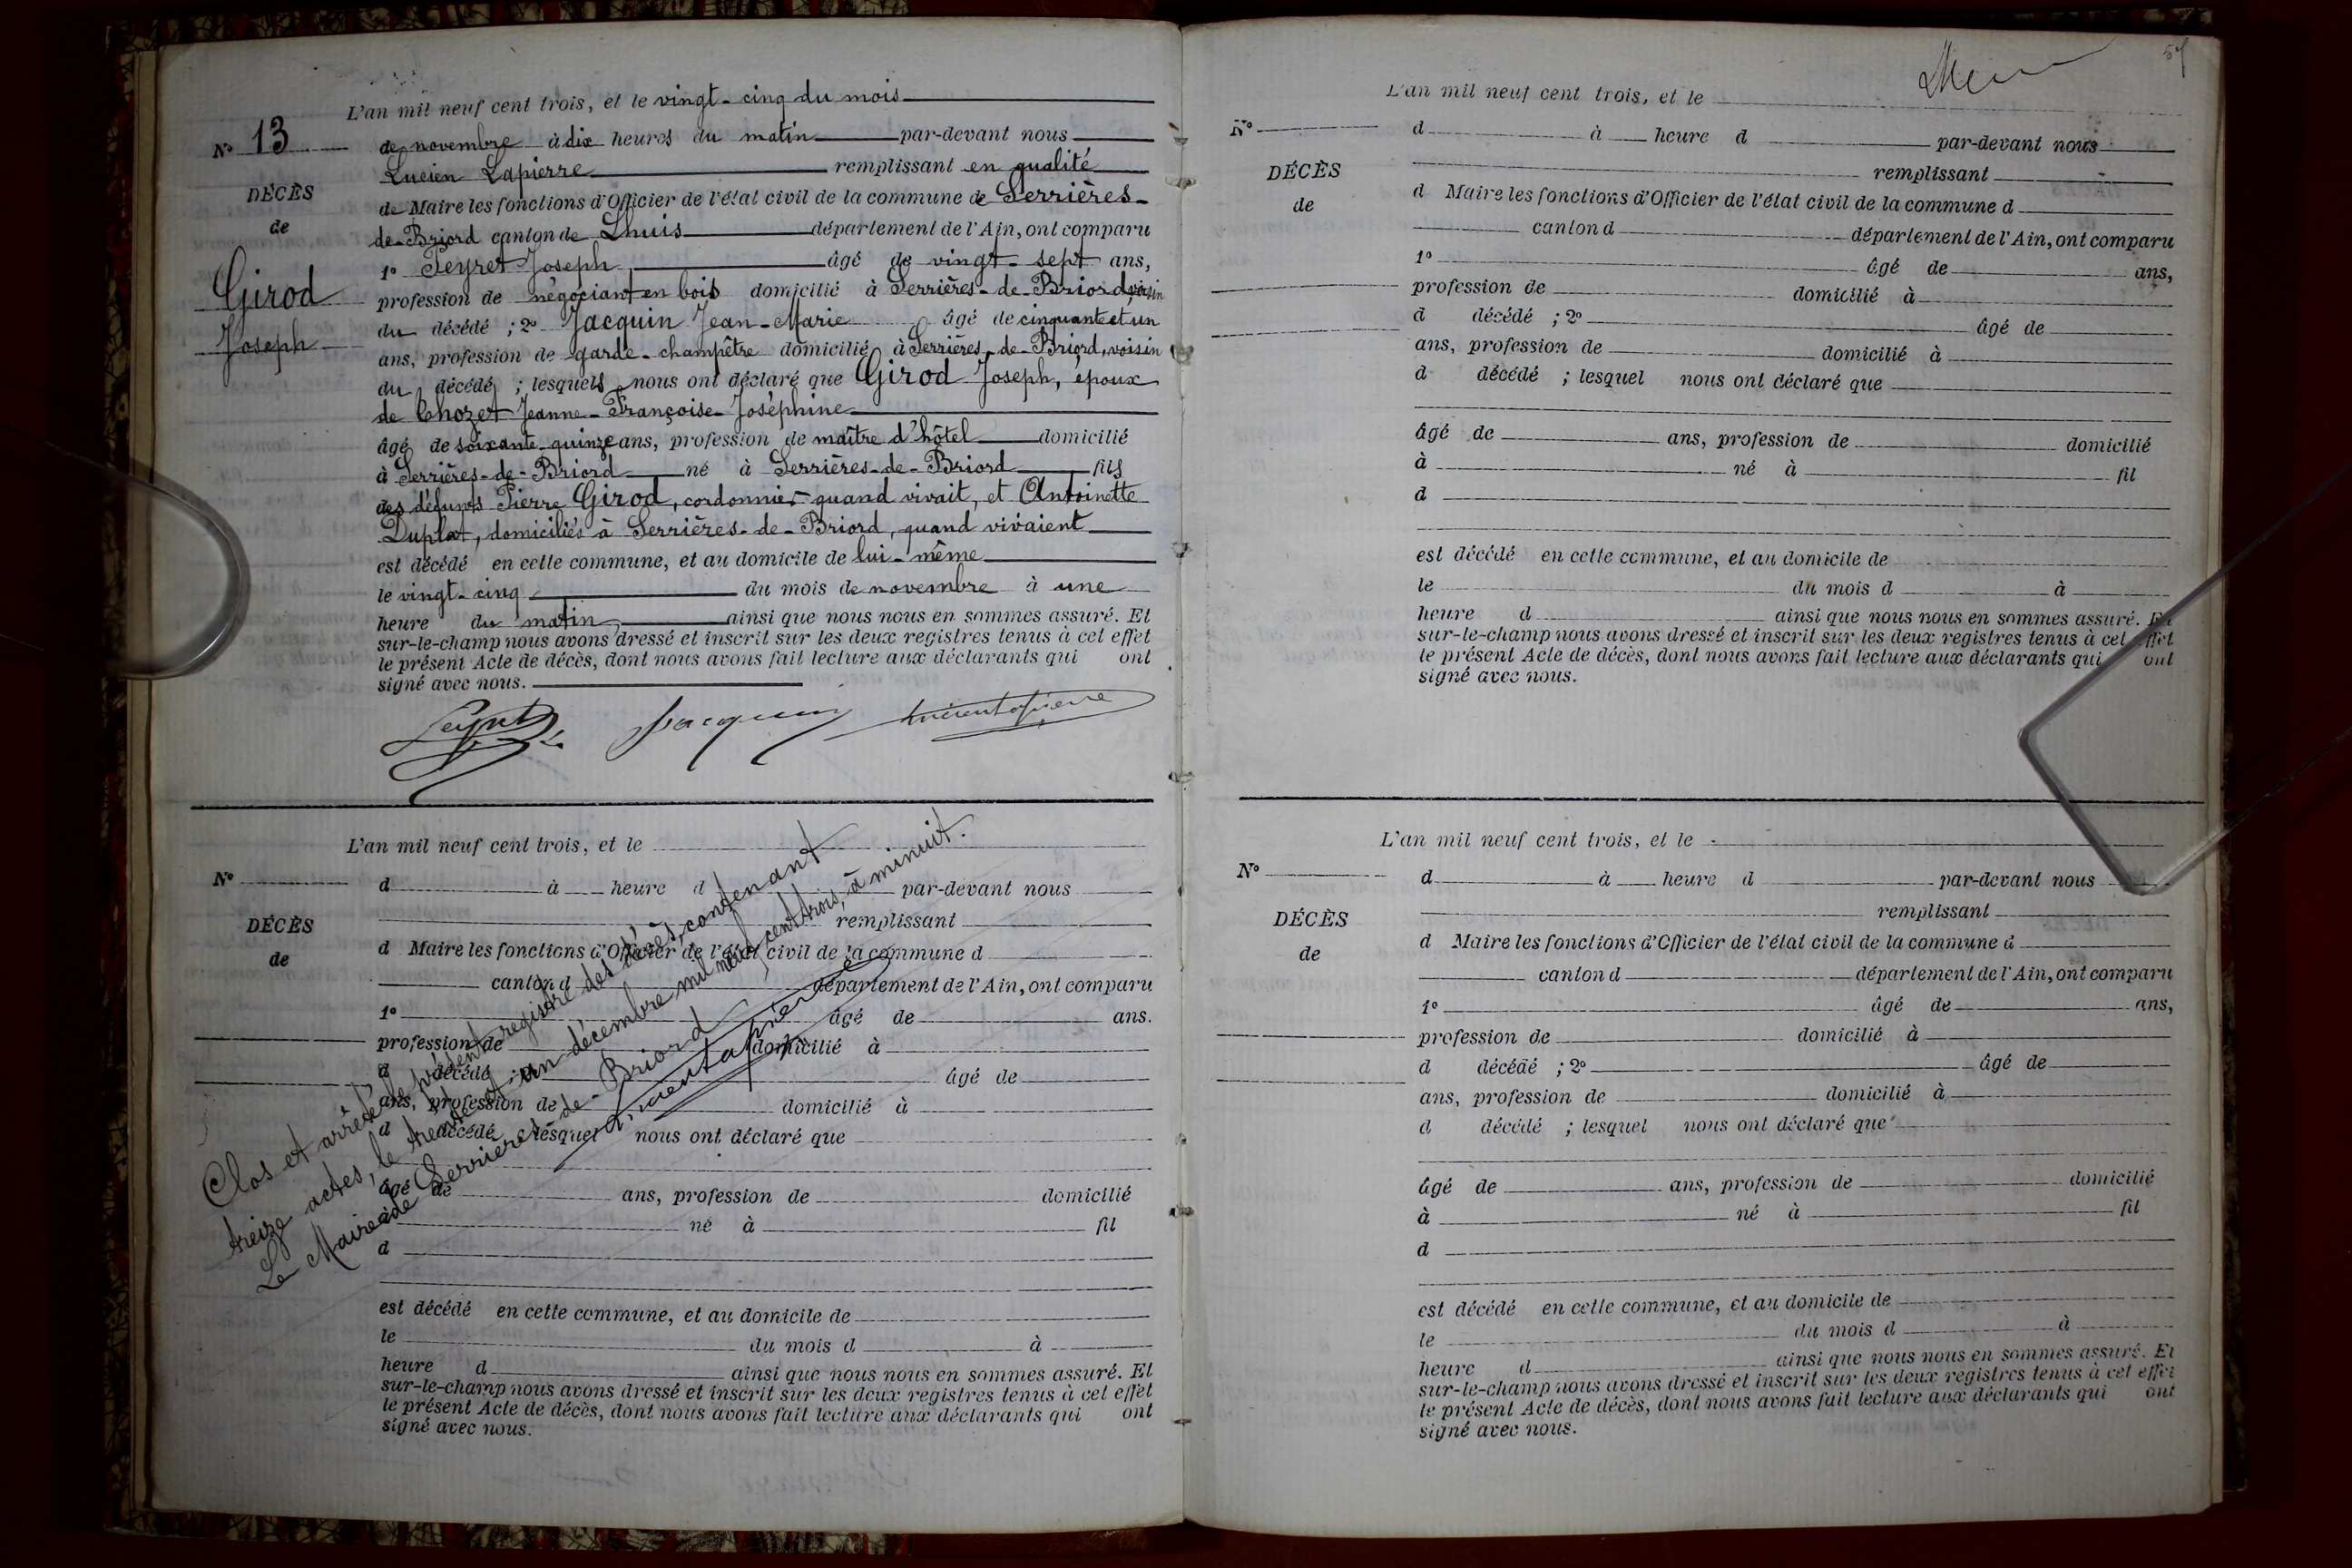 L'an mil neuf cent trois, et le vingt-cinq du mois
N° 13
de novembre à dix heures du matin par-devant nous
Lucien Lapierre remplissant en qualité
DÉCÈS
de Maire les fonctions d'Officier de l'état civil de la commune de Serrières-
de
de-Briord canton de Lhuis département de l'Ain, ont comparu
1° Peyret Joseph, âgé de vingt-sept ans,
Girod
profession de négociant en bois domicilié à Serrières-de-Briord, voisin
du décédé ; 2° Jacquin Jean-Marie âgé de cinquante et un
Joseph
ans, profession de garde-champêtre domicilié à Serrières-de-Briord, voisin
du décédé ; lesquels nous ont déclaré que Girod Joseph, époux
de Chozet Jeanne-Françoise-Joséphine
âgé de soixante-quinze ans, profession de maître d'hôtel domicilié
à Serrières-de-Briord né à Serrières-de-Briord fils
des défunts Pierre Girod, cordonnier quand vivait, et Antoinette
Duplat, domiciliés à Serrières-de-Briord, quand vivaient
est décédé en cette commune, et au domicile de lui-même
le vingt-cinq du mois de novembre à une
heure du matin, ainsi que nous nous en sommes assuré. Et
sur-le-champ nous avons dressé et inscrit sur les deux registres tenus à cet effet
le présent Acte de décès, dont nous avons fait lecture aux déclarants qui ont
signé avec nous.
Peyret Jacquin Lucien Lapierre
L'an mil neuf cent trois, et le
N°
d à heure d par-devant nous
remplissant
DÉCÈS
d Maire les fonctions d'Officier de l'état civil de la commune d
de
canton d département de l'Ain, ont comparu
1° âgé de ans.
profession de domicilié à
d décédé ; 2° âgé de
ans, profession de domicilié à
d décédé ; lesquel nous ont déclaré que
âgé de ans, profession de domicilié
à né à fil
d
est décédé en cette commune, et au domicile de
le du mois d à
heure d ainsi que nous nous en sommes assuré. Et
sur-le-champ nous avons dressé et inscrit sur les deux registres tenus à cet effet
le présent Acte de décès, dont nous avons fait lecture aux déclarants qui ont
signé avec nous.
Clos et arrêté le présent registre des décès, contenant
treize actes, le trente et un décembre mil neuf cent trois, à minuit.
Le Maire de Serrières-de-Briord
Lucien Lapierre
L'an mil neuf cent trois, et le
N°
d à heure d par-devant nous
remplissant
DÉCÈS
d Maire les fonctions d'Officier de l'état civil de la commune d
de
canton d département de l'Ain, ont comparu
1° âgé de ans,
profession de domicilié à
d décédé ; 2° âgé de
ans, profession de domicilié à
d décédé ; lesquel nous ont déclaré que
âgé de ans, profession de domicilié
à né à fil
d
est décédé en cette commune, et au domicile de
le du mois d à
heure d ainsi que nous nous en sommes assuré. Et
sur-le-champ nous avons dressé et inscrit sur les deux registres tenus à cet effet
le présent Acte de décès, dont nous avons fait lecture aux déclarants qui ont
signé avec nous.
L'an mil neuf cent trois, et le
N°
d à heure d par-devant nous
remplissant
DÉCÈS
d Maire les fonctions d'Officier de l'état civil de la commune d
de
canton d département de l'Ain, ont comparu
1° âgé de ans,
profession de domicilié à
d décédé ; 2° âgé de
ans, profession de domicilié à
d décédé ; lesquel nous ont déclaré que
âgé de ans, profession de domicilié
à né à fil
d
est décédé en cette commune, et au domicile de
le du mois d à
heure d ainsi que nous nous en sommes assuré. Et
sur-le-champ nous avons dressé et inscrit sur les deux registres tenus à cet effet
le présent Acte de décès, dont nous avons fait lecture aux déclarants qui ont
signé avec nous.